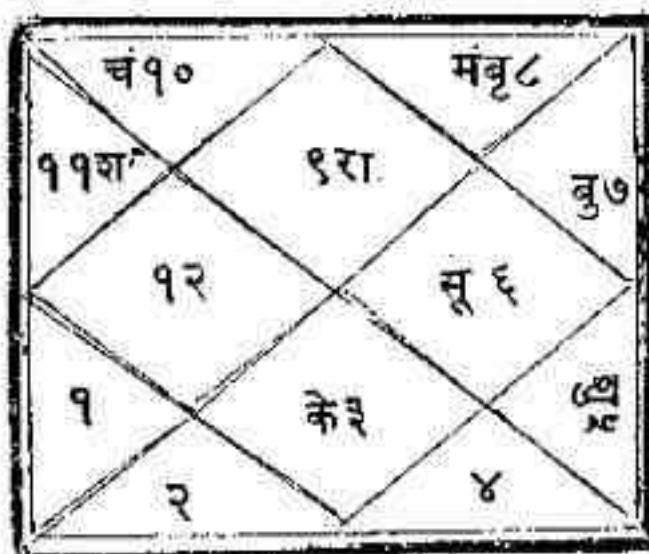 चं१०
मंबृ८
११श
९रा
बु७
१२
सू ६
१
के३
२
४